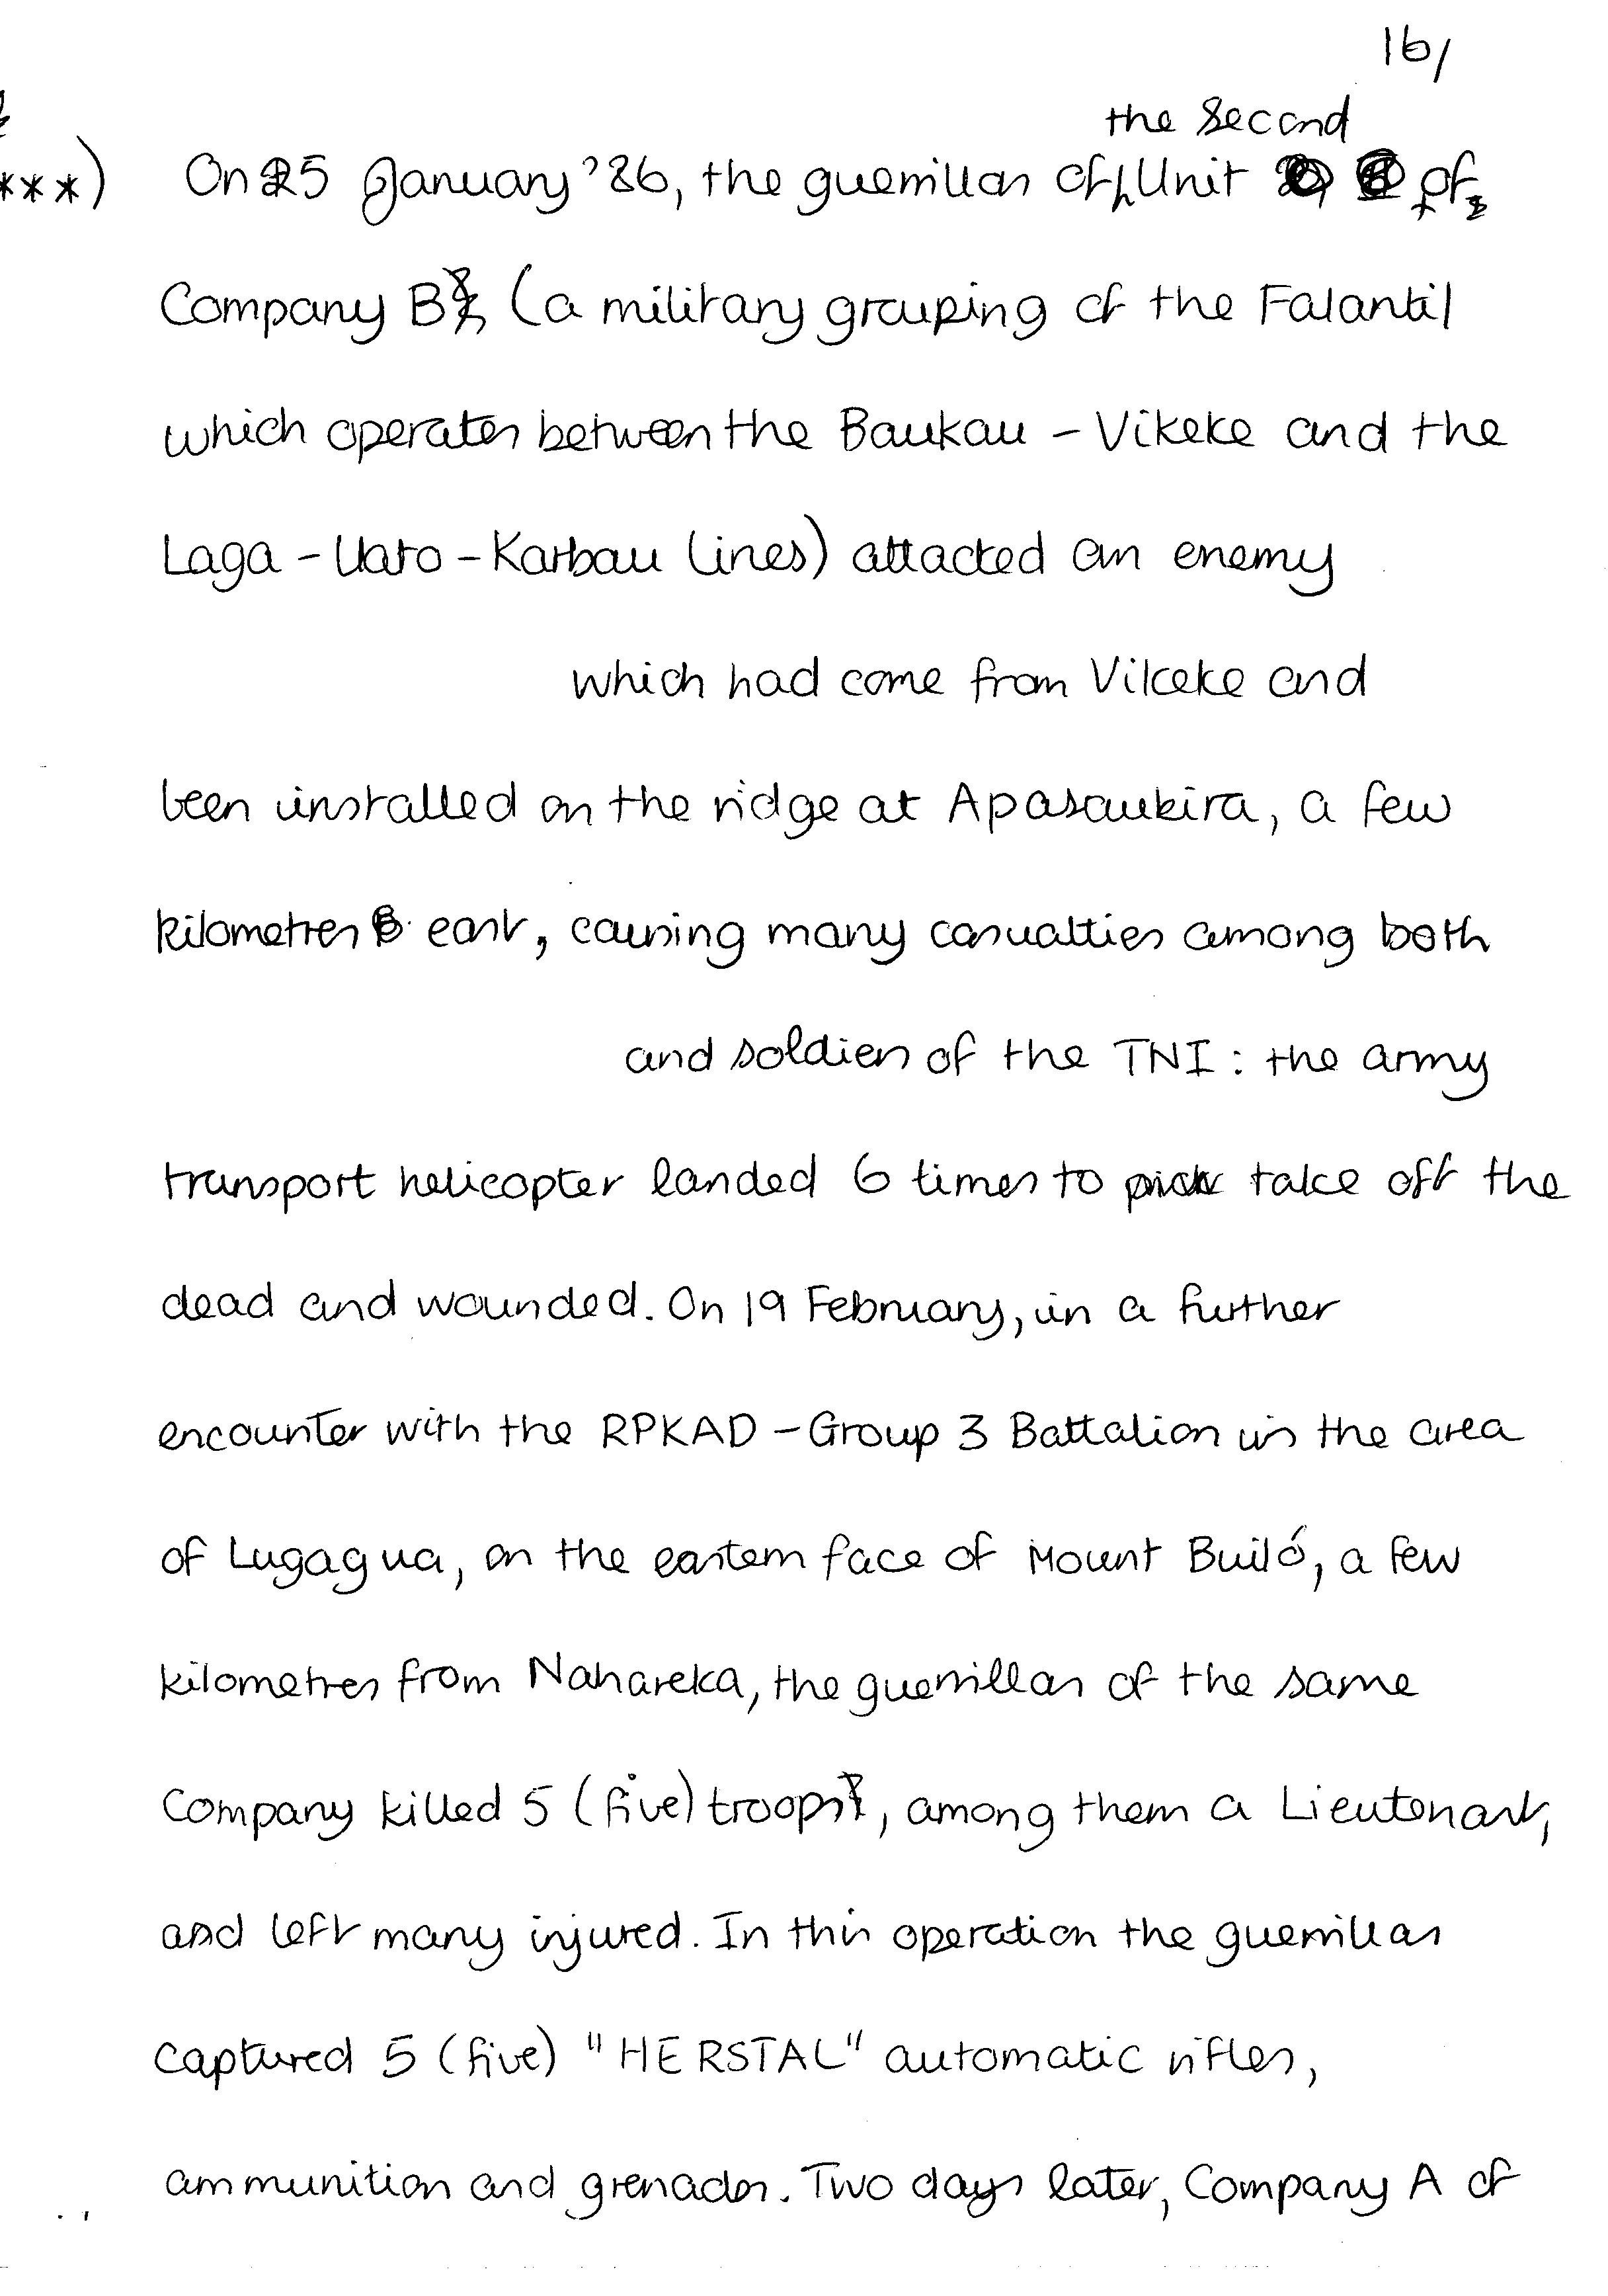 16/
the Second
***) On 25 January '86, the guerrillas of Unit of
Company B (a military grouping of the Falantil
which operates between the Baukau - Vikeke and the
Laga - Uato - Karbau lines) attacted an enemy
which had come from Vikeke and
been installed on the ridge at Apasaukira, a few
kilometres east, causing many casualties among both
and soldiers of the TNI : the army
transport helicopter landed 6 times to pick take off the
dead and wounded. On 19 February, in a further
encounter with the RPKAD - Group 3 Battalion in the area
of Lugagua, on the eastern face of Mount Builó, a few
kilometres from Nahareka, the guerrillas of the same
Company killed 5 (five) troops, among them a Lieutenant,
and left many injured. In this operation the guerrillas
captured 5 (five) "HERSTAL" automatic rifles,
ammunition and grenades. Two days later, Company A of